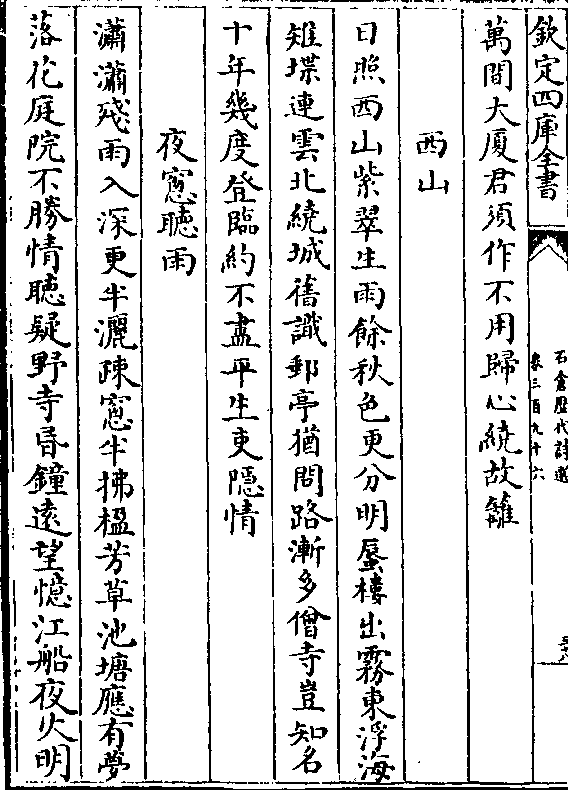 欽定四庫全書
石倉歷代詩選
卷三百九十六
萬間大厦君須作不用歸心繞故籬
西山
日照西山紫翠生雨餘秋色更分明蜃樓出霧東浮海
雉堞連雲北繞城舊識郵亭猶問路漸多僧寺豈知名
十年幾度登臨約不盡平生吏隱情
夜窻聽雨
瀟瀟殘雨入深更半灑疎窻半拂楹芳草池塘應有夢
落花庭院不勝情聽疑野寺昏鐘遠望憶江船夜火明